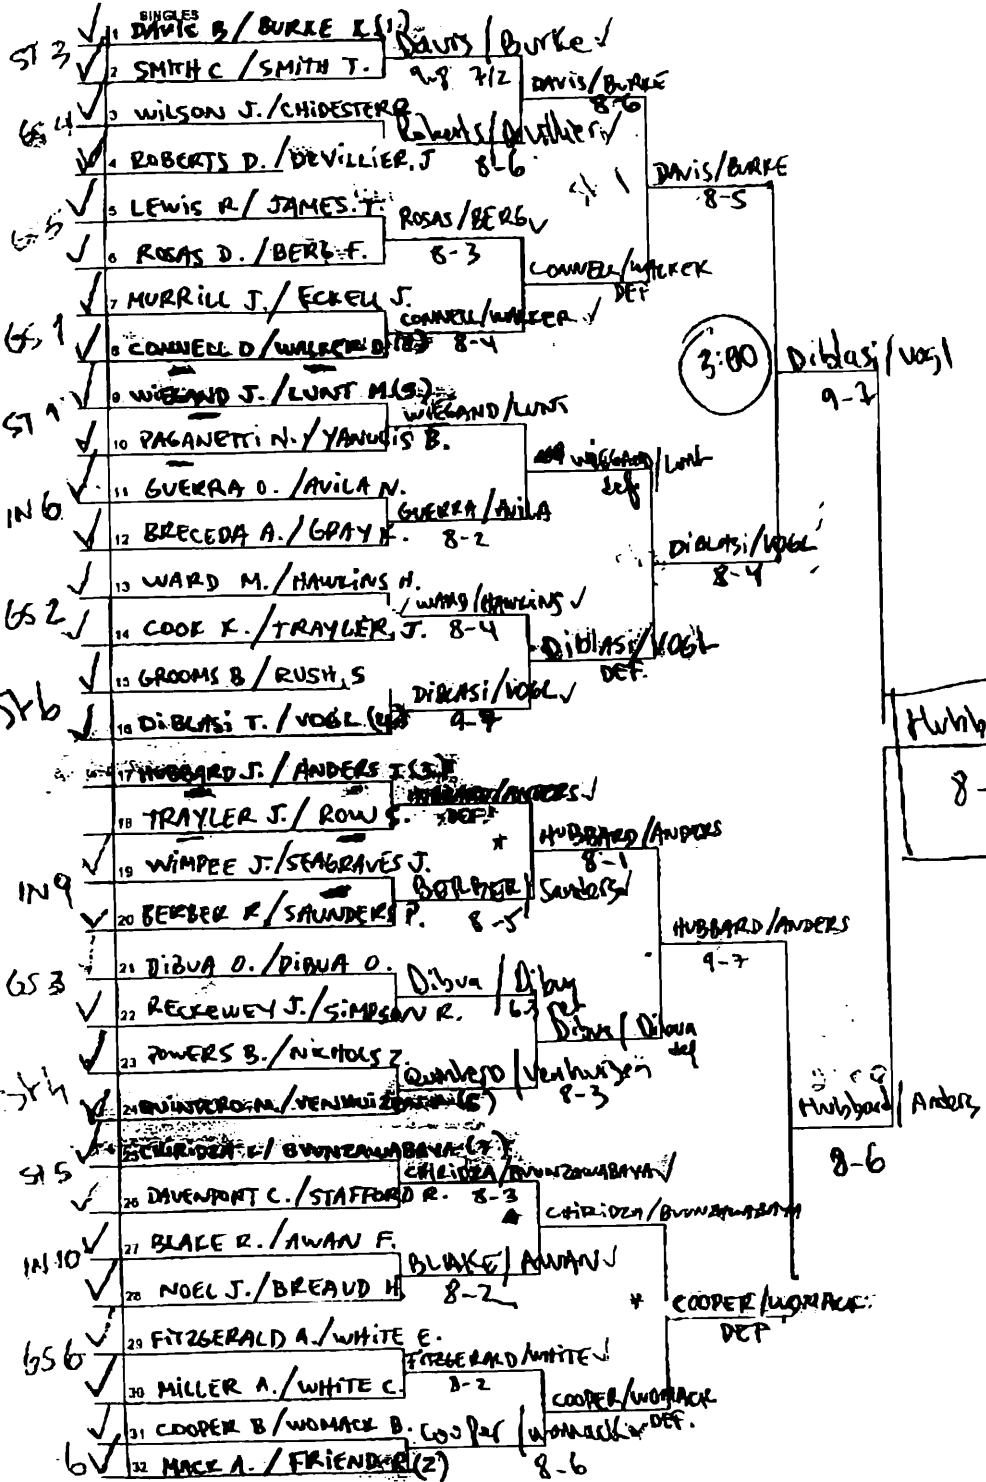 SINGLES
1 DAVIS B/BURKE K(1)
ST 3
2 SMITH C/SMITH T.
3 WILSON J./CHIDESTER R
GS 4
4 ROBERTS D./DEVILLIER, J
5 LEWIS R/JAMES. T.
6 ROSAS D./BERG F.
7 MURRILL J./ECKELL J.
GS 1
8 CONNELL D/WALKER D (8)
9 WIEGAND J./LUNT M(5)
ST 1
10 PAGANETTI N./YANULIS B.
11 GUERRA O./AVILA N.
IN 6
12 BRECEDA A./GRAY K.
13 WARD M./HAWKINS H.
GS 2
14 COOK K./TRAYLER, J.
15 GROOMS B/RUSH, S
St 6
16 DIBLASI T./VOGL (4)
17 HUBBARD J./ANDERS J(3)
18 TRAYLER J./ROW S.
19 WIMPEE J./SEAGRAVES J.
IN 9
20 BERBER R/SAUNDERS P.
21 DIBUA O./DIBUA O.
GS 3
22 RECKEWEY J./SIMPSON R.
23 POWERS B./NICHOLS Z.
24 QUINTERO M./VENHUIZEN (6)
25 CHIRIDZA /BVUNZAWABAYA (7)
ST 5
26 DAVENPORT C./STAFFORD R.
27 BLAKE R./AWAN F.
IN 10
28 NOEL J./BREAUD H
29 FITZGERALD A./WHITE E.
GS 6
30 MILLER A./WHITE C.
31 COOPER B/WOMACK B.
6
32 MACK A./FRIENDER (2)
Davis/Burke
9-8 7/2
Roberts/Devillier
8-6
ROSAS/BERG
8-3
CONNELL/WALKER
8-4
WIEGAND/LUNT
GUERRA/AVILA
8-2
WARD/HAWKINS
8-4
DIBLASI/VOGL
9-7
HUBBARD/ANDERS
DEF.
BERBER/Saunders
8-5
Dibua/Dibua
Quintero/Venhuizen
8-3
CHIRIDZA/BVUNZAWABAYA
8-3
BLAKE/AWAN
8-2
FITZGERALD/WHITE
8-2
Cooper/Womack
8-6
DAVIS/BURKE
8-6
CONNELL/WALKER
DEF
WIEGAND/Lunt
def
DIBLASI/VOGL
DEF.
HUBBARD/ANDERS
8-1
Dibua/Dibua
def
CHIRIDZA/BVUNZAWABAYA
COOPER/WOMACK
DEF.
DAVIS/BURKE
8-5
DIBLASI/VOGL
8-4
HUBBARD/ANDERS
9-7
COOPER/WOMACK
DEF
3:00
Diblasi/Vogl
9-7
Hubbard/Anders
8-6
Hubb
8-